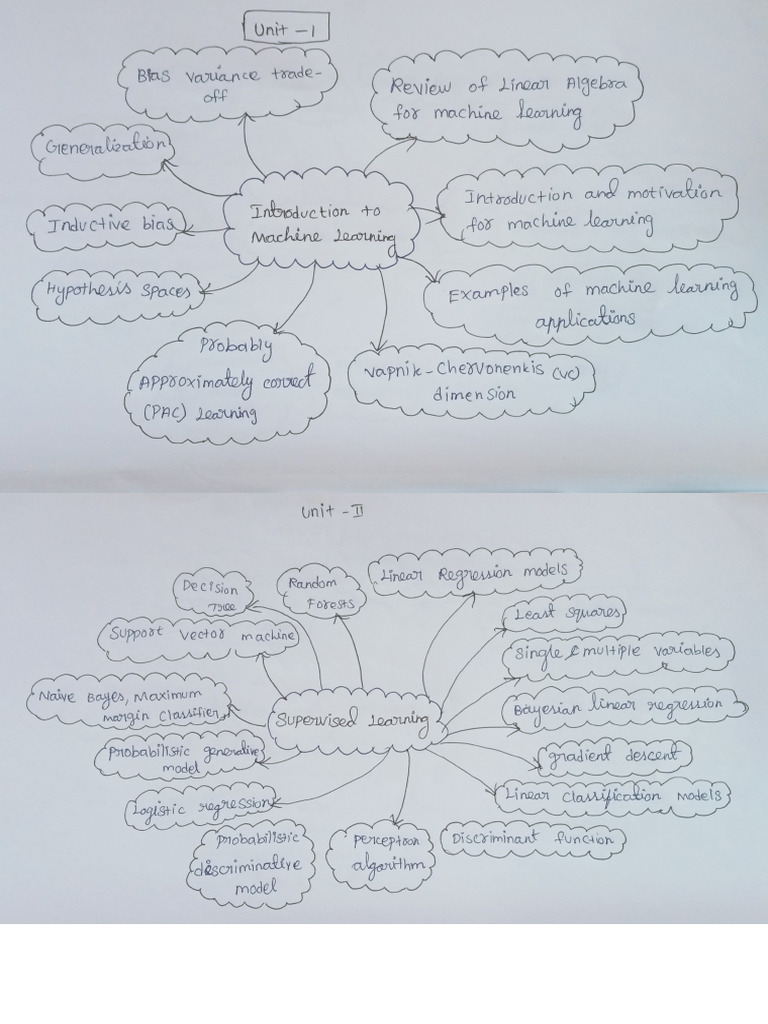 Unit - I
Bias variance trade-
off
Review of Linear Algebra
for machine learning
Generalization
Introduction and motivation
for machine learning
Introduction to
Machine Learning
Inductive bias
Hypothesis spaces
Examples of machine learning
applications
Probably
Approximately correct
(PAC) Learning
Vapnik-Chervonenkis (VC)
dimension
Unit - II
Decision
Tree
Random
Forests
Linear Regression models
Least squares
Support vector machine
Single & multiple variables
Naive Bayes, Maximum
margin classifier
Supervised Learning
Bayesian linear regression
Probabilistic generative
model
gradient descent
Logistic regression
Linear classification models
Probabilistic
discriminative
model
perceptron
algorithm
Discriminant function